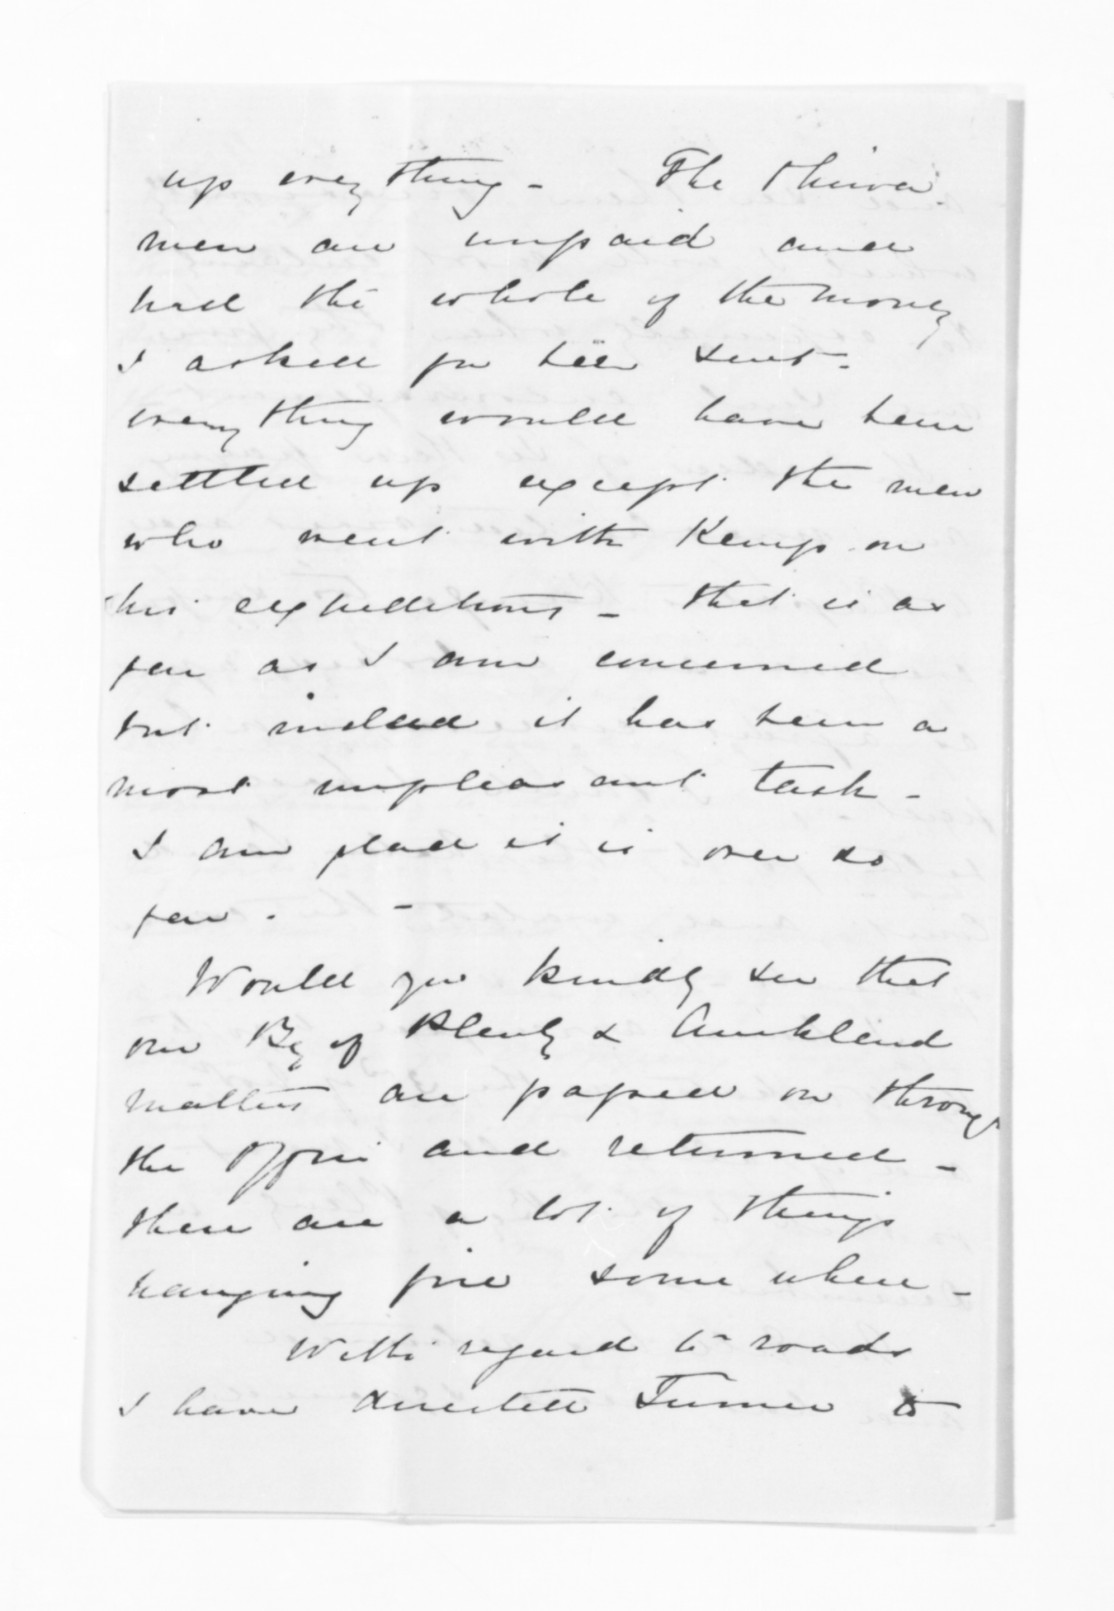 up every thing - The
men are unpaid and
had the whole of the money
I asked for been sent -
every thing would have been
settled up except the men
who went with Kemp on
his expeditions - that is as
far as I am concerned
but indeed it has been a
most unpleasant task -
I am glad it is over so
far. -
Would you kindly see that
our By of Plenty & Auckland
matters are passed on through
the Office and returned -
there are a lot of things
hanging fire some where -
With regard to roads
I have directed Turner to